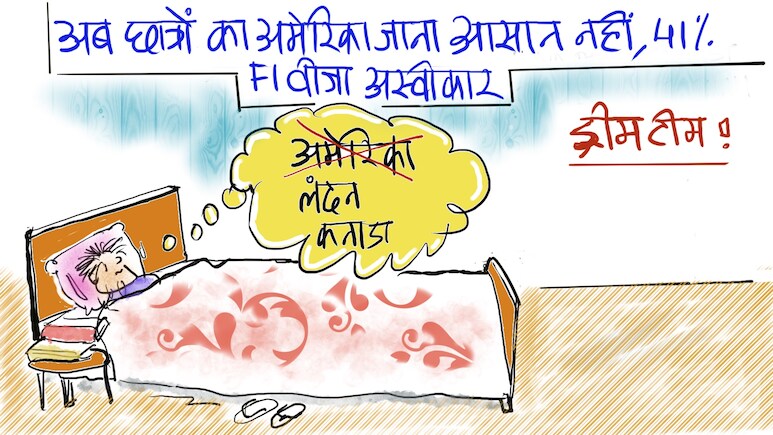 अब छात्रों का अमेरिका जाना आसान नहीं, 41%
F1 वीजा अस्वीकार
ड्रीम टीम !
अमेरिका
लंदन
कनाडा